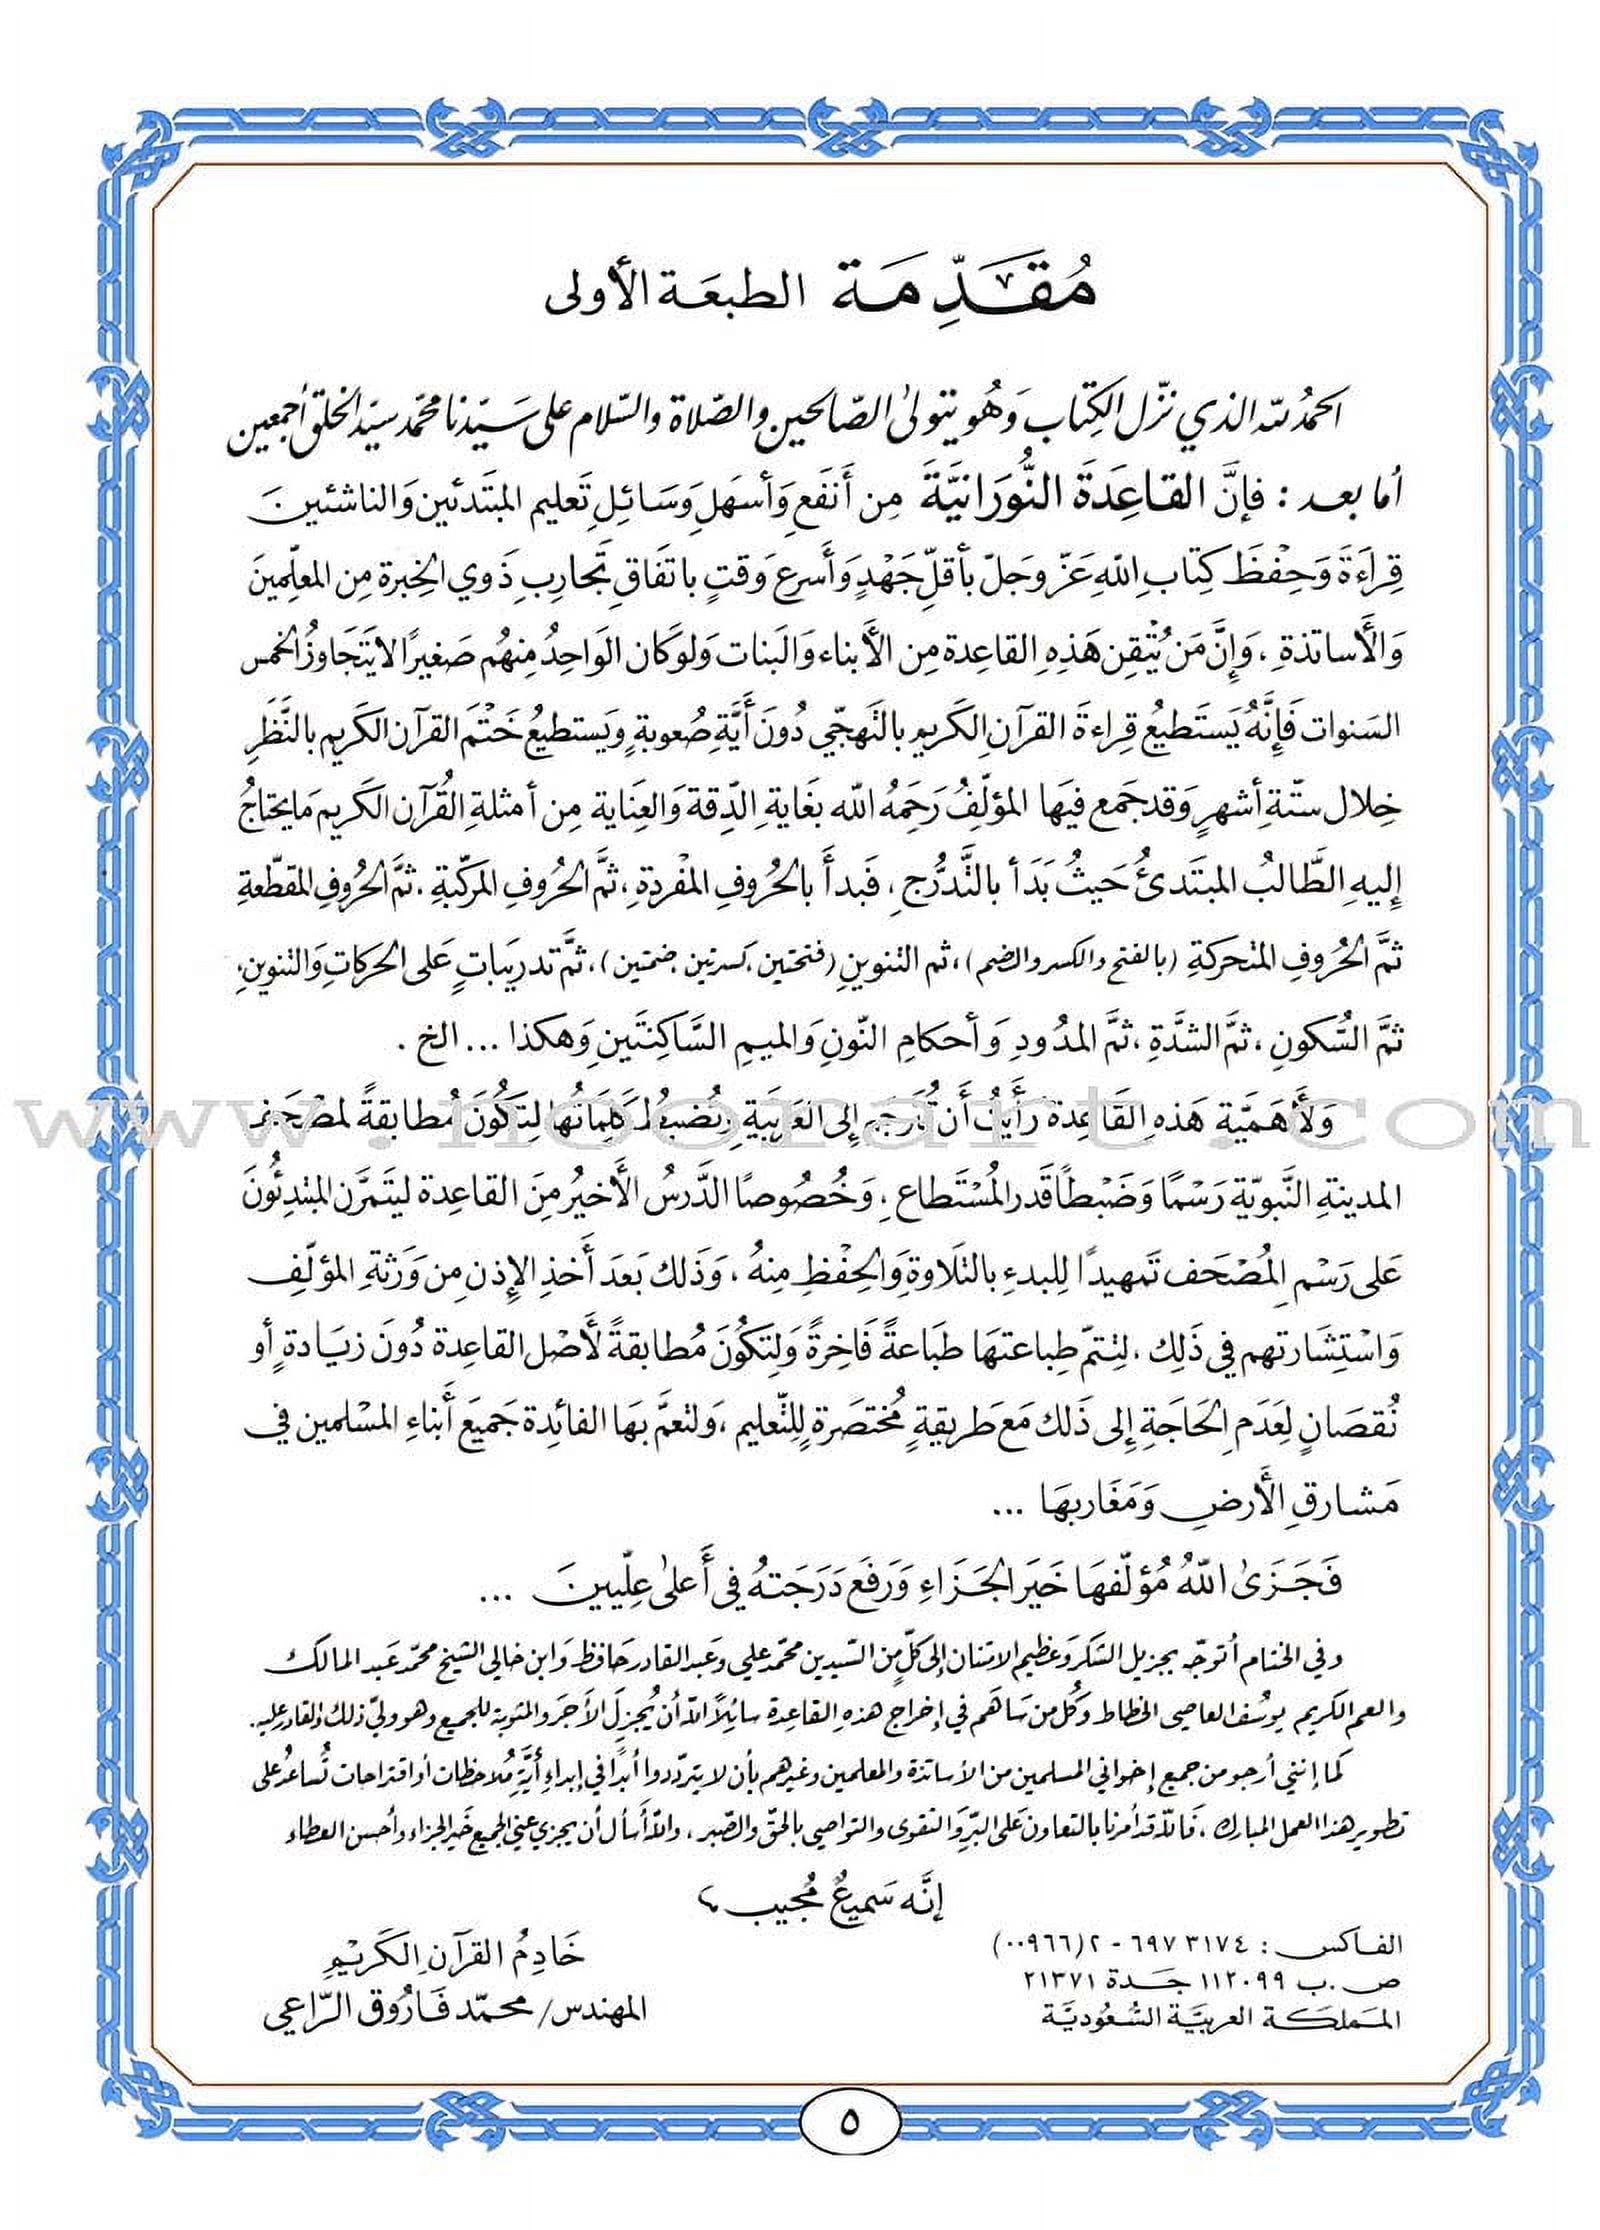 مُقَدِّمَة الطبعَة الأولى
الحمدُ لله الذي نزّل الكِتاب وَهُو يتولىٰ الصّالحين والصّلاة والسّلام على سَيّدنا محمّد سيّد الخلق أجمعين
أما بعد : فإنَّ القاعِدَةَ النُّورَانيَّةَ مِن أَنفَع وَأسهَلِ وَسَائِلِ تَعليم المبتَدئين وَالناشئينَ
قِراءَةَ وَحِفْظَ كِتابِ اللهِ عَزّ وجَلّ بأقلِّ جَهْدٍ وَأَسرعِ وَقتٍ باتفَاقِ تَجاربِ ذَوي الخِبرة مِن المعلِّمينَ
وَالأَساتذةِ ، وَإِنَّ مَن يُتْقِن هَذِهِ القاعِدة مِن الأبناء وَالبَنات وَلو كَان الوَاحِدُ مِنهُم صَغيرًا لا يَتَجَاوزُ الخمس
السَنوات فَإنَّهُ يَستَطيعُ قِراءةَ القرآنِ الكَريمِ بالتَهجّي دُونَ أَيَّةِ صُعوبةٍ وَيَستطيعُ خَتْمَ القرآن الكَريم بالنَّظَرِ
خِلال ستّةِ أشهرٍ وَقد جَمع فيهَا المؤلّفُ رَحِمَهُ الله بغَايةِ الدِّقة وَالعِناية مِن أمثلةِ القُرآن الكَريم مَا يحتاجُ
إليهِ الطَّالبُ المبتَدئُ حَيثُ بَدَأ بالتَّدرُّجِ ، فَبدأَ بالحُروفِ المفْردةِ ، ثمَّ الحُروفِ المركّبةِ ، ثمَّ الحُروفِ المقطّعةِ
ثمَّ الحُروفِ المتحركةِ (بالفتح والكسر والضم) ، ثم التنوينِ (فتحتين، كسرتين، ضمتين) ، ثمَّ تدريباتٍ عَلى الحركاتِ وَالتنوينِ،
ثمَّ السُّكونِ ، ثمَّ الشدَّةِ ، ثمَّ المدُودِ وَأحكامِ النّونِ وَالميمِ السَّاكِنتَينِ وَهكذا ... الخ .
وَلأَهَميَّة هَذهِ القَاعِدة رَأَيتُ أَن تُترجَم إلى العَرَبيةِ وَتُضبَطَ كَلِمَاتُها لِتَكُونَ مُطابقةً لمصْحَفِ
المدينةِ النَّبويّة رَسْمًا وَضَبْطًا قَدر المُسْتَطاع ، وَخُصُوصًا الدَّرسُ الأَخيرُ مِنَ القاعِدة ليتَمرَّن المبتدِئُونَ
عَلى رَسْم المِصْحَف تَمهيدًا للبدءِ بالتلاوةِ وَالحِفْظِ مِنهُ ، وَذَلك بَعدَ أَخذِ الإِذن مِن وَرَثةِ المؤلّفِ
وَاسْتِشَارتهم في ذَلِك ، لِتتمّ طِباعتهَا طبَاعةً فَاخِرةً وَلِتكُونَ مُطابقةً لأَصْل القاعِدة دُونَ زيَادةٍ أو
نُقصَانٍ لِعَدَمِ الحَاجَةِ إِلى ذَلك مَعَ طَريقةٍ مُختصَرةٍ للتّعليم ، وَلتعمَّ بهَا الفائِدة جَميعَ أَبناءِ المسْلمين في
مَشارقِ الأَرضِ وَمَغَاربهَا ...
فَجَزىٰ اللهُ مُؤلّفهَا خَيرَ الجَزَاءِ وَرَفَعَ دَرَجَتهُ في أَعلىٰ عِلِّيينَ ...
وفي الختام أتوجّه بجزيل الشكر وَعظيم الامتنان إلى كلٍّ من السّيدين محمّد علي وعَبد القادر حَافظ وَابن خالي الشيخ محمّد عَبد المالك
والعم الكريم يوسُف العاصي الخطاط وكُل من سَاهَم في إخراج هذهِ القاعِدة سائِلاً الله أن يُجزِلَ الأجرَ والمثوبة للجميع وهو وليّ ذلك والقادر عليه.
كما إنني أرجو من جميع إخواني المسلمين من الأساتذة والمعلمين وغيرهم بأن لا يتردّدوا أبدًا في إبداءِ أيّةِ مُلاحظات أو اقتراحات تُساعدُ على
تطوير هذا العمل المبارك ، فالله قد أمرنا بالتعاون عَلى البرِّ وَالتقوى والتواصي بالحق والصّبر ، والله أسأل أن يجزي عني الجميع خَير الجزاء وأحسن العطاء
إنَّه سَميعٌ مُجيب
الفاكس : ٦٩٧٣١٧٤ - ٢ (٠٠٩٦٦)
ص.ب ١١٢٠٩٩ جَدة ٢١٣٧١
المَملكَة العَربيَّة السُّعُوديَّة
خَادِمُ القرآنِ الكَريْمِ
المهندس/ محمّد فَارُوق الرّاعي
٥
www.noorart.com